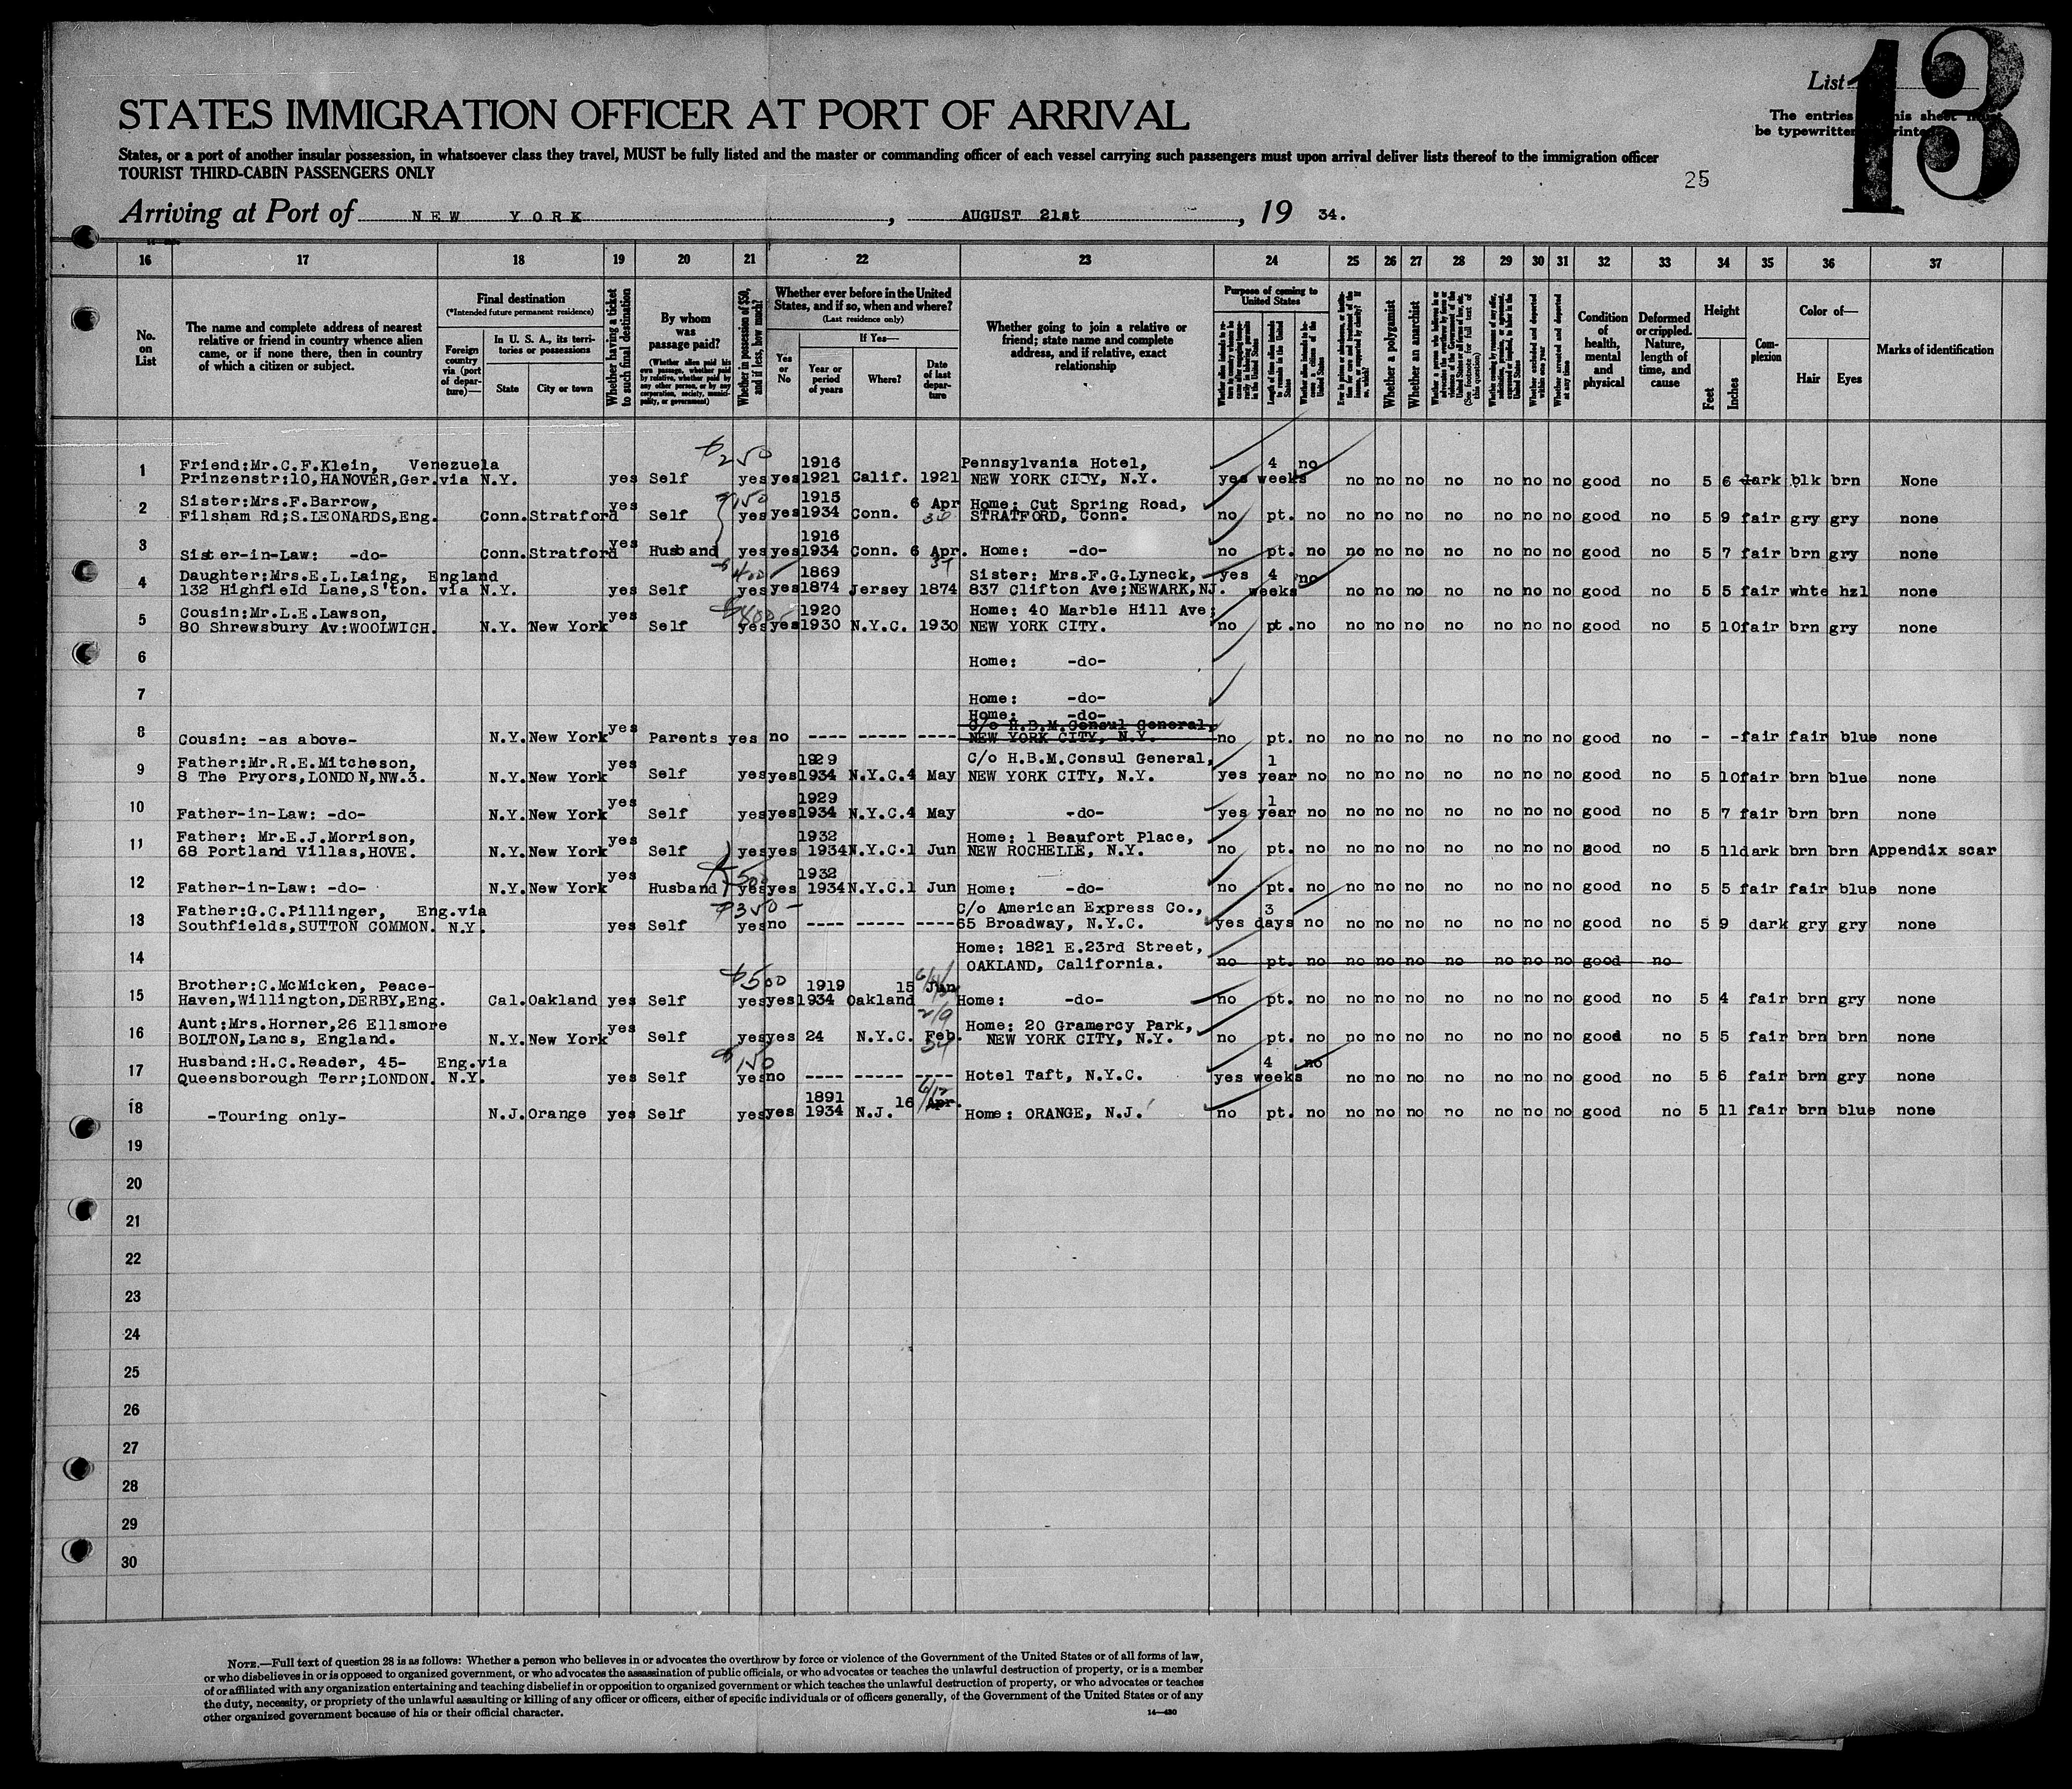 List 13
The entries this sheet must
be typewritten printed
STATES IMMIGRATION OFFICER AT PORT OF ARRIVAL
States, or a port of another insular possession, in whatsoever class they travel, MUST be fully listed and the master or commanding officer of each vessel carrying such passengers must upon arrival deliver lists thereof to the immigration officer
TOURIST THIRD-CABIN PASSENGERS ONLY
25
Arriving at Port of NEW YORK, AUGUST 21st, 19 34.
16 17 18 19 20 21 22 23 24 25 26 27 28 29 30 31 32 33 34 35 36 37
No. on List
The name and complete address of nearest relative or friend in country whence alien came, or if none there, then in country of which a citizen or subject.
Final destination
(*Intended future permanent residence)
Foreign country via (port of departure)—
In U. S. A., its territories or possessions
State
City or town
Whether having a ticket to such final destination
By whom was passage paid?
(Whether alien paid his own passage, whether paid by relative, whether paid by any other person, or by any corporation, society, municipality, or government)
Whether in possession of $50, and if less, how much?
Whether ever before in the United States, and if so, when and where?
(Last residence only)
Yes or No
If Yes—
Year or period of years
Where?
Date of last departure
Whether going to join a relative or friend; state name and complete address, and if relative, exact relationship
Purpose of coming to United States
Length of time alien intends to remain in the United States
Whether a polygamist
Whether an anarchist
Whether excluded and deported within one year
Whether arrested and deported at any time
Condition of health, mental and physical
Deformed or crippled. Nature, length of time, and cause
Height
Feet
Inches
Complexion
Color of—
Hair
Eyes
Marks of identification
1 Friend:Mr.C.F.Klein, Venezuela $250 1916 Pennsylvania Hotel, 4 no
Prinzenstr:10,HANOVER,Ger.via N.Y. yes Self yes yes 1921 Calif. 1921 NEW YORK CITY, N.Y. yes weeks no no no no no no no good no 5 6 dark blk brn None
2 Sister:Mrs.F.Barrow, yes 150 1915 6 Apr Home: Cut Spring Road,
Filsham Rd;S.LEONARDS,Eng. Conn. Stratford Self yes yes 1934 Conn. 34 STRATFORD, Conn. no pt. no no no no no no no no good no 5 9 fair gry gry none
3 yes 1916
Sister-in-Law: -do- Conn. Stratford Husband yes yes 1934 Conn. 6 Apr. Home: -do- no pt. no no no no no no no no good no 5 7 fair brn gry none
34
4 Daughter:Mrs.E.L.Laing, England $400 1869 Sister: Mrs.F.G.Lyneck, yes 4 no
132 Highfield Lane,S'ton. via N.Y. yes Self yes yes 1874 Jersey 1874 837 Clifton Ave;NEWARK,NJ. weeks no no no no no no no good no 5 5 fair whte hzl none
5 Cousin:Mr.L.E.Lawson, yes 1920 Home: 40 Marble Hill Ave;
80 Shrewsbury Av:WOOLWICH. N.Y. New York Self yes yes 1930 N.Y.C. 1930 NEW YORK CITY. no pt. no no no no no no no no good no 5 10 fair brn gry none
6 Home: -do-
7 Home: -do-
Home: -do-
C/o H.B.M.Consul General,
8 Cousin: -as above- N.Y. New York yes Parents yes no ---- ----- ---- NEW YORK CITY, N.Y. no pt. no no no no no no no no good no - - fair fair blue none
9 Father:Mr.R.E.Mitcheson, yes 1929 C/o H.B.M.Consul General, 1
8 The Pryors,LONDON,NW.3. N.Y. New York Self yes yes 1934 N.Y.C. 4 May NEW YORK CITY, N.Y. yes year no no no no no no no no good no 5 10 fair brn blue none
10 yes 1929 1
Father-in-Law: -do- N.Y. New York Self yes yes 1934 N.Y.C. 4 May -do- yes year no no no no no no no no good no 5 7 fair brn brn none
11 Father: Mr.E.J.Morrison, yes 1932 Home: 1 Beaufort Place,
68 Portland Villas,HOVE. N.Y. New York Self yes yes 1934 N.Y.C. 1 Jun NEW ROCHELLE, N.Y. no pt. no no no no no no no no good no 5 11 dark brn brn Appendix scar
12 yes $500 1932
Father-in-Law: -do- N.Y. New York Husband yes yes 1934 N.Y.C. 1 Jun Home: -do- no pt. no no no no no no no no good no 5 5 fair fair blue none
13 Father:G.C.Pillinger, Eng.via $350- C/o American Express Co., 3
Southfields,SUTTON COMMON. N.Y. yes Self yes no ---- ----- ---- 65 Broadway, N.Y.C. yes days no no no no no no no no good no 5 9 dark gry gry none
14 Home: 1821 E.23rd Street,
OAKLAND, California. no pt. no no no no no no no no good no
15 Brother:C.McMicken, Peace- $500 1919 15 Jun
Haven,Willington,DERBY,Eng. Cal. Oakland yes Self yes yes 1934 Oakland Home: -do- no pt. no no no no no no no no good no 5 4 fair brn gry none
16 Aunt:Mrs.Horner,26 Ellsmore yes 2/9 Home: 20 Gramercy Park,
BOLTON,Lancs, England. N.Y. New York Self yes yes 24 N.Y.C. Feb. 34 NEW YORK CITY, N.Y. no pt. no no no no no no no no good no 5 5 fair brn brn none
17 Husband:H.C.Reader, 45- Eng.via $150 4 no
Queensborough Terr;LONDON. N.Y. yes Self yes no ---- ----- ---- Hotel Taft, N.Y.C. yes weeks no no no no no no no good no 5 6 fair brn gry none
18 1891 16 Apr.
-Touring only- N.J. Orange yes Self yes yes 1934 N.J. Home: ORANGE, N.J. no pt. no no no no no no no no good no 5 11 fair brn blue none
19
20
21
22
23
24
25
26
27
28
29
30
NOTE.—Full text of question 28 is as follows: Whether a person who believes in or advocates the overthrow by force or violence of the Government of the United States or of all forms of law,
or who disbelieves in or is opposed to organized government, or who advocates the assassination of public officials, or who advocates or teaches the unlawful destruction of property, or is a member
of or affiliated with any organization entertaining and teaching disbelief in or opposition to organized government or which teaches the unlawful destruction of property, or who advocates or teaches
the duty, necessity, or propriety of the unlawful assaulting or killing of any officer or officers, either of specific individuals or of officers generally, of the Government of the United States or of any
other organized government because of his or their official character.
14—430